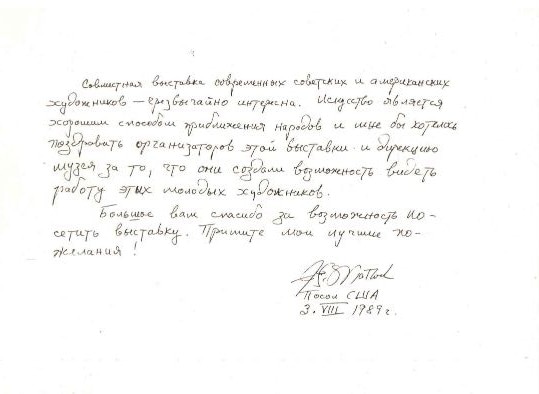 Совместная выставка современных советских и американских
художников — чрезвычайно интересна. Искусство является
хорошим способом приближения народов и мне бы хотелось
поздровить организаторов этой выставки и дирекцию
музея за то, что они создали возможность видеть
работу этих молодых художников.
Большое вам спасибо за возможность по-
сетить выставку. Примите мои лучшие по-
желания!
Посол США
3. VIII 1989 г.